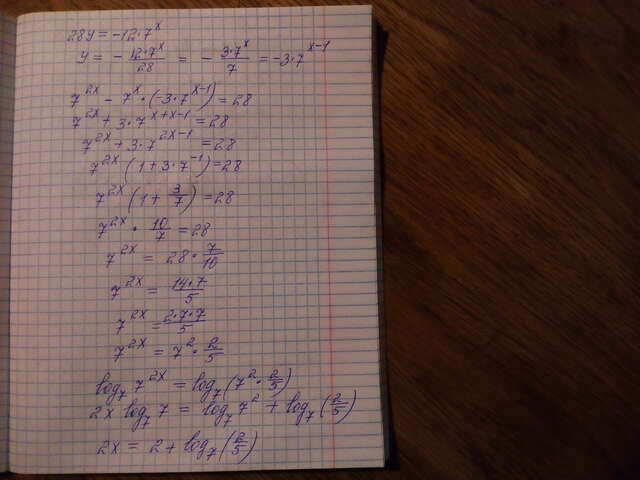 28y = -12·7^x
y = - 12·7^x/28 = - 3·7^x/7 = -3·7^(x-1)
7^(2x) - 7^x·(-3·7^(x-1)) = 28
7^(2x) + 3·7^(x+x-1) = 28
7^(2x) + 3·7^(2x-1) = 28
7^(2x) (1+3·7^(-1)) = 28
7^(2x) (1 + 3/7) = 28
7^(2x) · 10/7 = 28
7^(2x) = 28 · 7/10
7^(2x) = 14·7/5
7^(2x) = 2·7·7/5
7^(2x) = 7^2 · 2/5
log_7 7^(2x) = log_7 (7^2 · 2/5)
2x log_7 7 = log_7 7^2 + log_7 (2/5)
2x = 2 + log_7 (2/5)